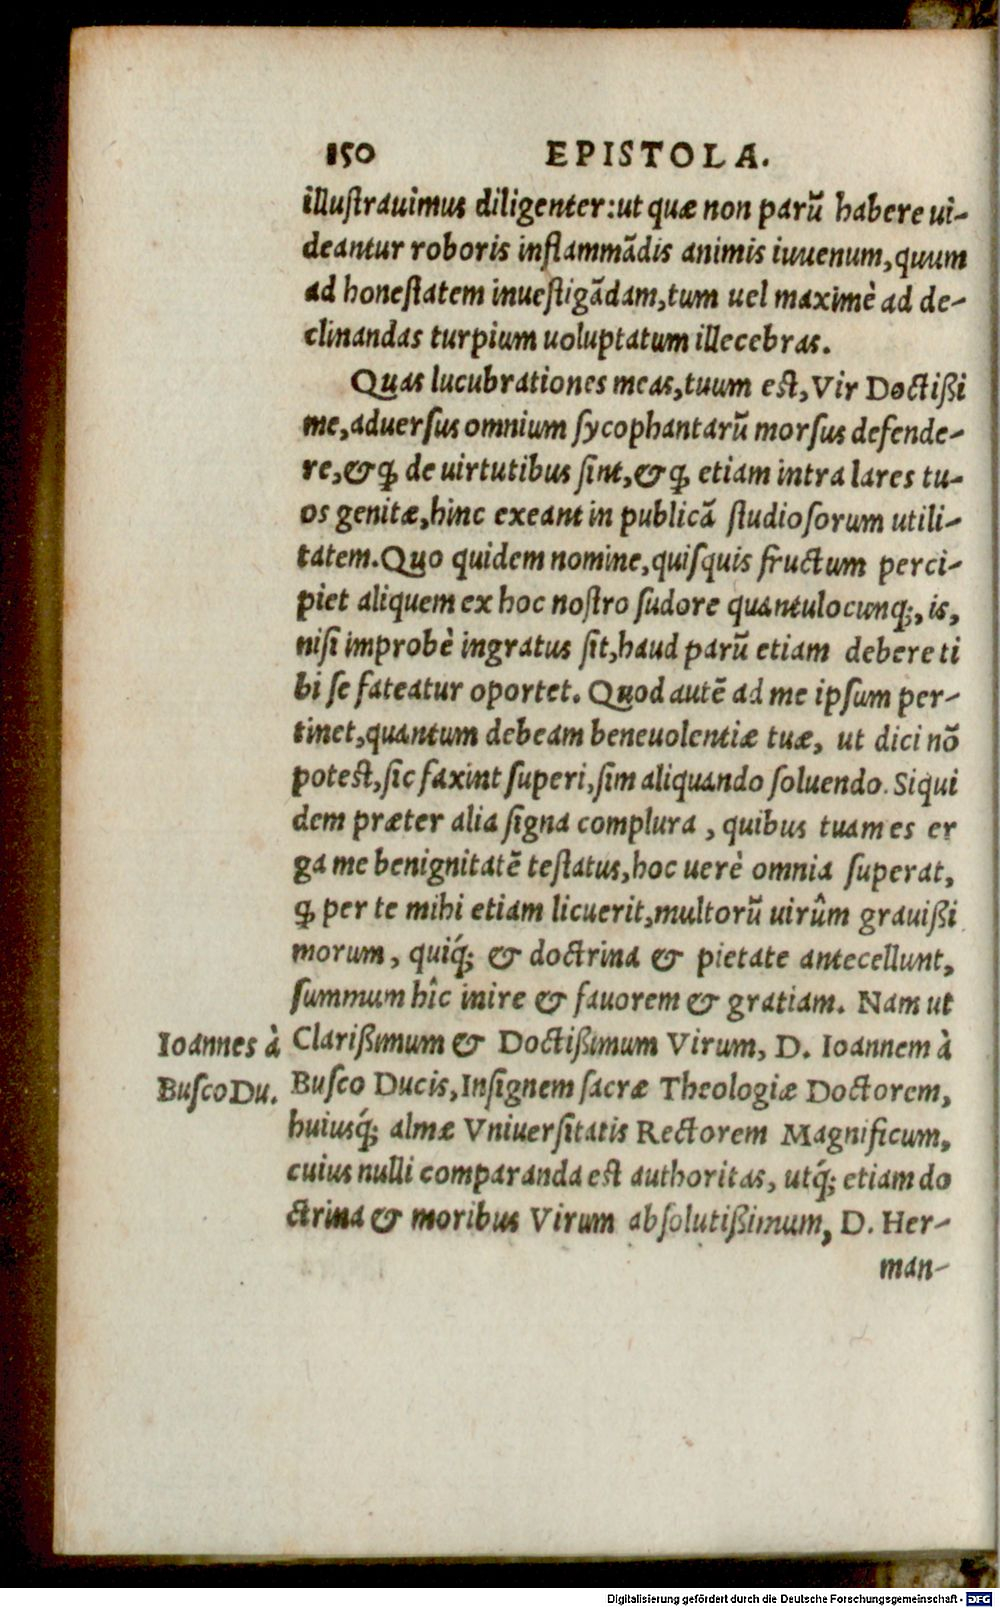 150 EPISTOLA.
illuſtrauimus diligenter: ut quæ non parũ habere ui-
deantur roboris inflammãdis animis iuuenum, quum
ad honeſtatem inueſtigãdam, tum uel maximè ad de-
clinandas turpium uoluptatum illecebras.
Quas lucubrationes meas, tuum eſt, Vir Doctißi
me, aduerſus omnium ſycophantarũ morſus defende-
re, & ꝙ de uirtutibus ſint, & ꝙ etiam intra lares tu-
os genitæ, hinc exeant in publicã ſtudioſorum utili-
tatem. Quo quidem nomine, quiſquis fructum perci-
piet aliquem ex hoc noſtro ſudore quantulocunq;, is,
niſi improbè ingratus ſit, haud parũ etiam debere ti
bi ſe fateatur oportet. Quod autẽ ad me ipſum per-
tinet, quantum debeam beneuolentiæ tuæ, ut dici nõ
poteſt, ſic faxint ſuperi, ſim aliquando ſoluendo. Siqui
dem præter alia ſigna complura, quibus tuam es er
ga me benignitatẽ teſtatus, hoc uerè omnia ſuperat,
ꝙ per te mihi etiam licuerit, multorũ uirûm grauißi
morum, quiq́; & doctrina & pietate antecellunt,
ſummum hîc inire & fauorem & gratiam. Nam ut
Ioannes à
Buſco Du.
Clarißimum & Doctißimum Virum, D. Ioannem à
Buſco Ducis, Inſignem ſacræ Theologiæ Doctorem,
huiusq́; almæ Vniuerſitatis Rectorem Magnificum,
cuius nulli comparanda eſt authoritas, utq́; etiam do
ctrina & moribus Virum abſolutißimum, D. Her-
man-
Digitalisierung gefördert durch die Deutsche Forschungsgemeinschaft - DFG